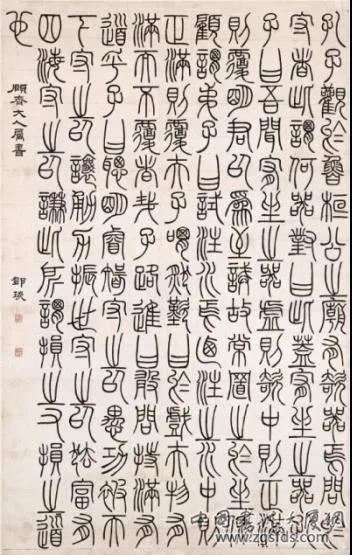 孔子觀於魯桓公之廟有欹器焉問於
守者此謂何器對曰此蓋宥坐之器孔
子曰吾聞宥坐之器虛則欹中則正滿
則覆明君以為至誡故常置之於坐側
顧謂弟子曰試注水焉迺注之水中則
正滿則覆夫子喟然歎曰於戲夫物有
滿而不覆者哉子路進曰敢問持滿有
道乎子曰聰明睿智守之以愚功被天
下守之以讓勇力振世守之以怯富有
四海守之以謙此所謂損之又損之道
也
顧齋大人屬書
鄧琰
www.zgsfds.com